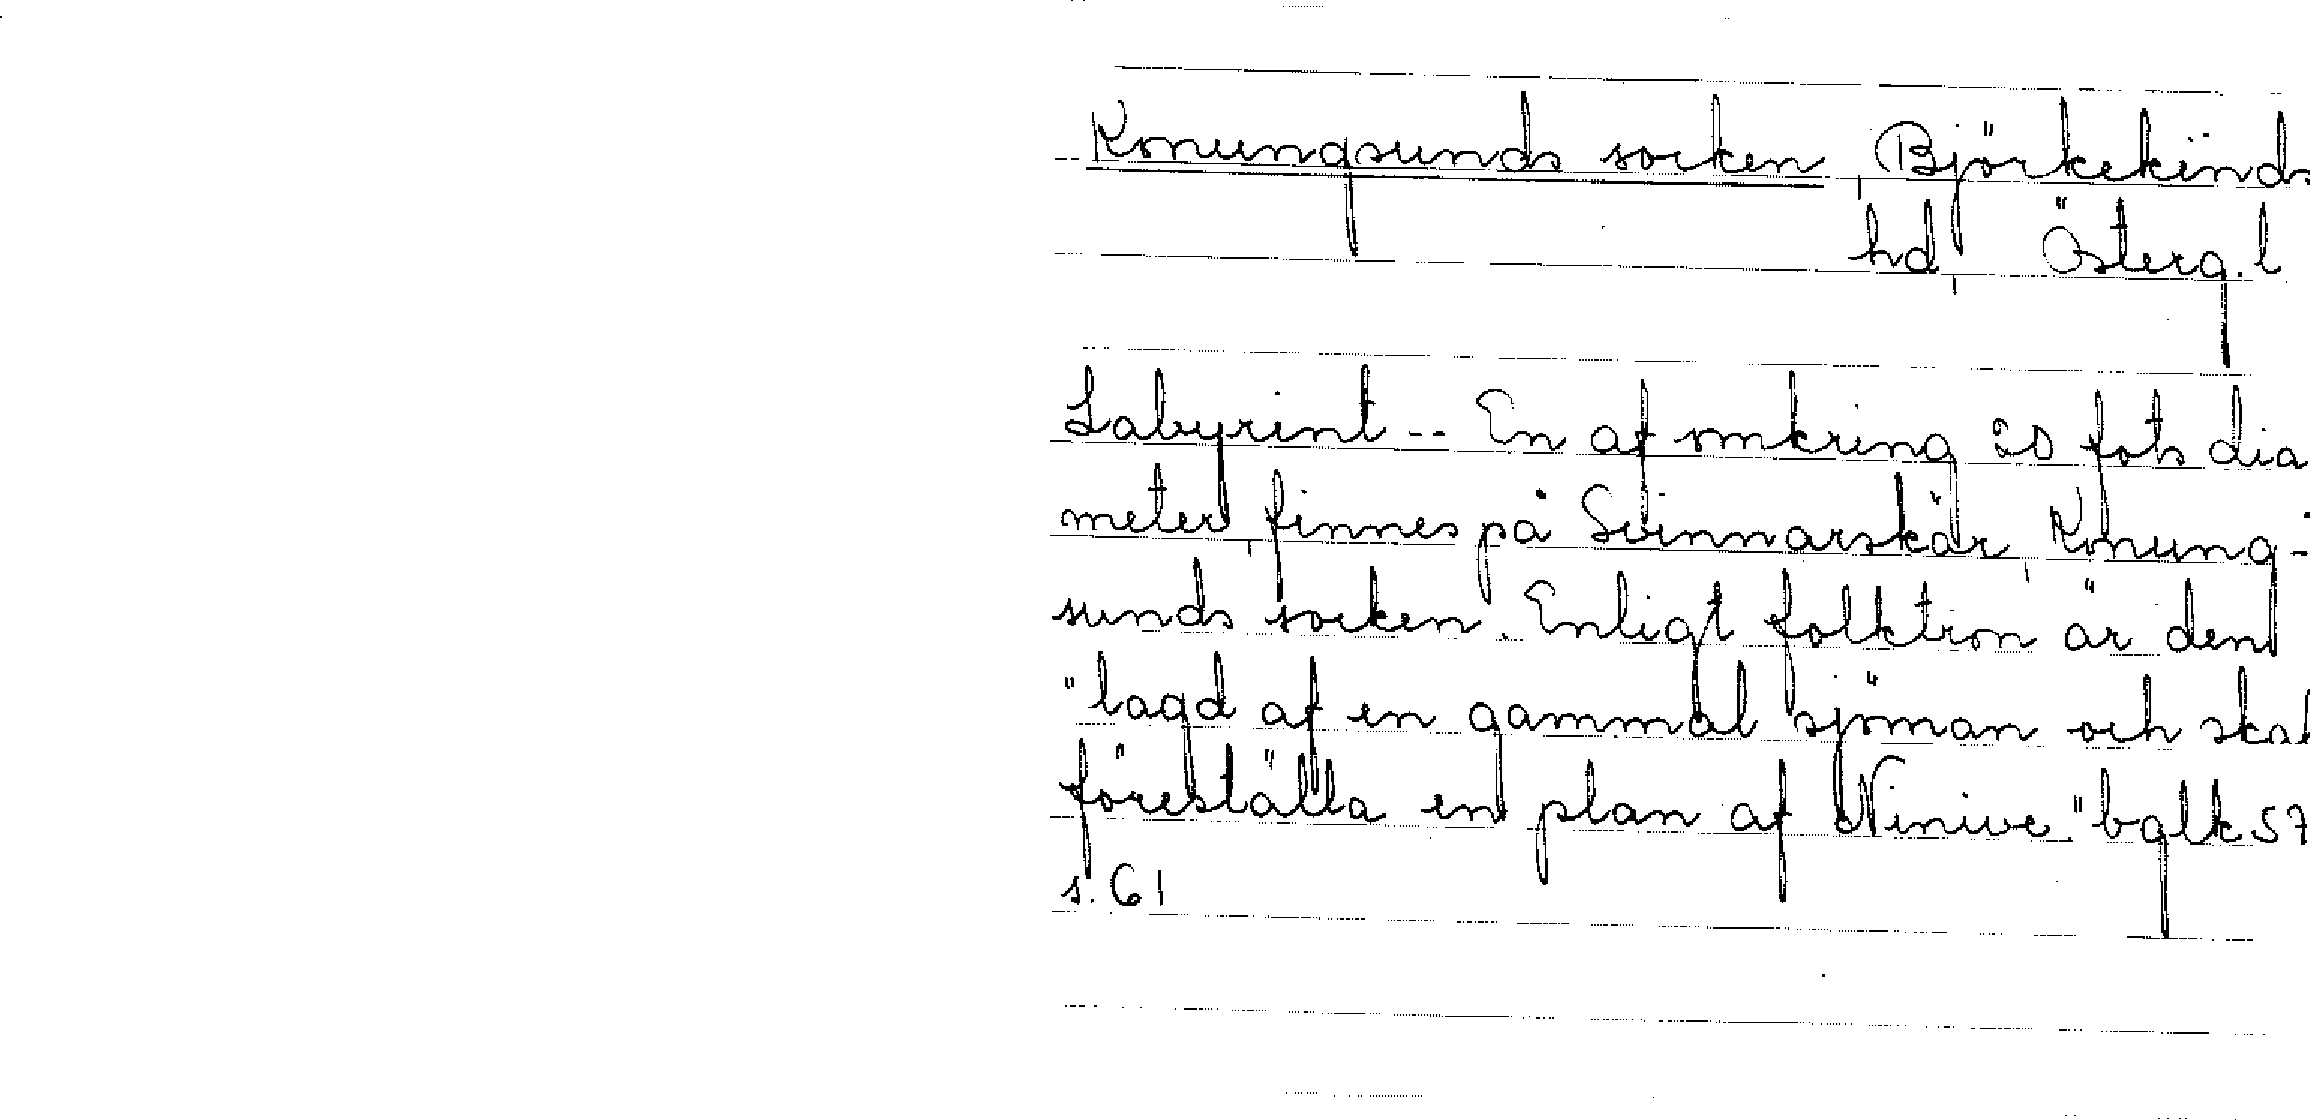 Konungsunds socken, Björkekinds
hd, Österg. l
Labyrint -- En af omkring 20 fots dia
meter, finnes på Svinnarskär, Konung-
sunds socken. Enligt folktron är den
"lagd af en gammal sjöman och skal
föreställa en plan af Ninive." bglk 57
s. 61